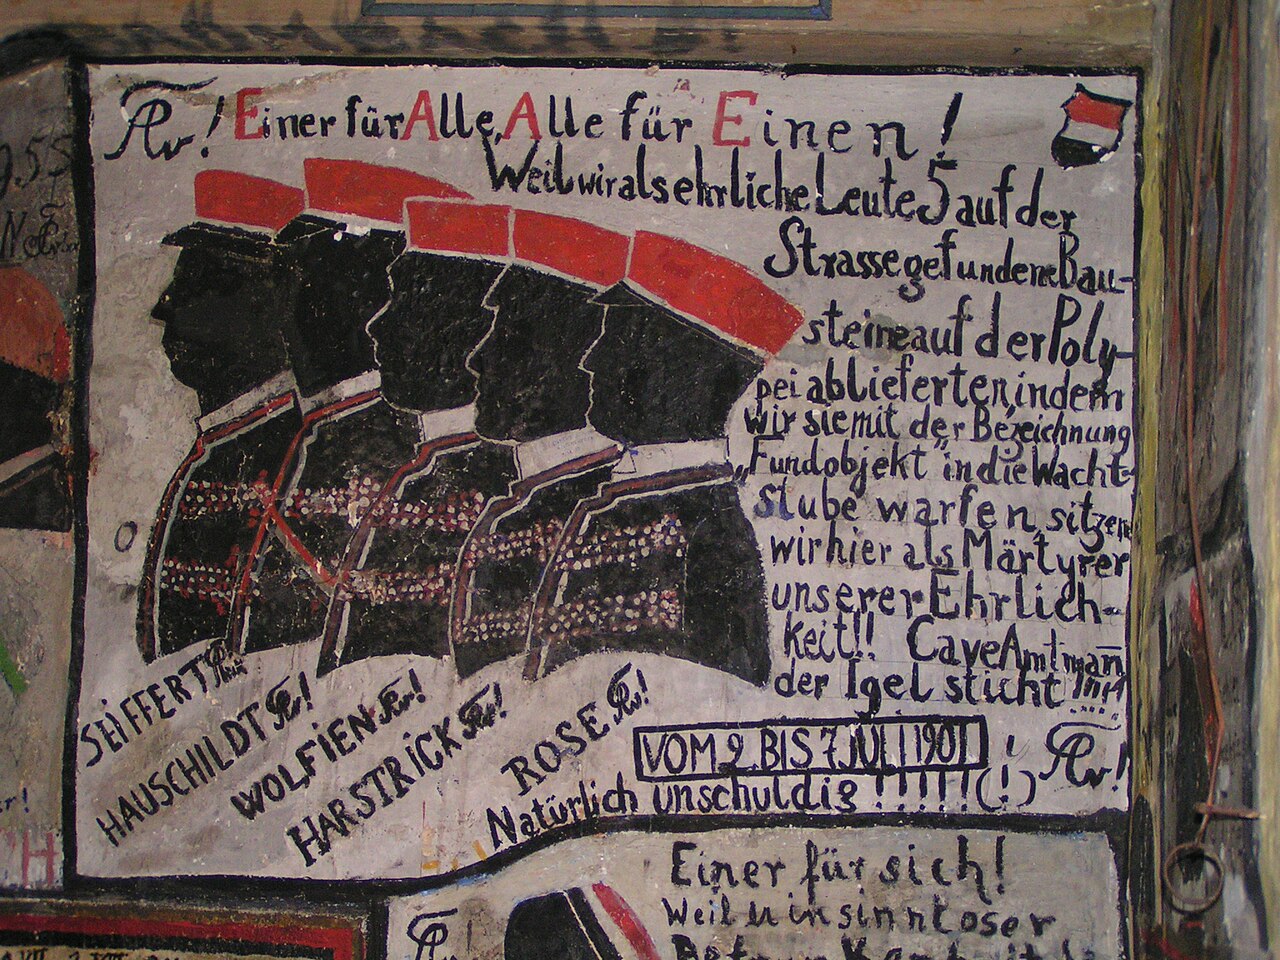 ! Einer für Alle, Alle für Einen!
Weil wir als ehrliche Leute 5 auf der
Strasse gefundene Bau-
steine auf der Poly-
pei ablieferten, indem
wir sie mit der Bezeichnung
„Fundobjekt" in die Wacht-
stube warfen, sitzen
wir hier als Märtyrer
unserer Ehrlich-
keit!! Cave Amtmañ
der Igel sticht !!!!
SEIFFERT
HAUSCHILDT !
WOLFIEN !
HARSTRICK !
ROSE !
VOM 2. BIS 7. JULI 1901 ! !
Natürlich unschuldig !!!!!(!)
955
H
Einer für sich!
Weil in sinnloser